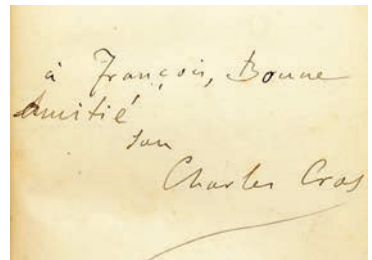 à François, Bonne
Amitié
son
Charles Cros